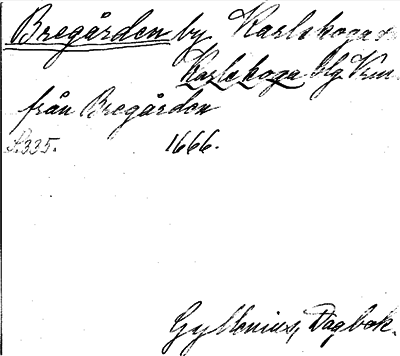 Bregården by Karlskoga
Karlskoga Hg Vrm
från Bregården
S. 335. 1666.
Gyllenius, Dagbok.